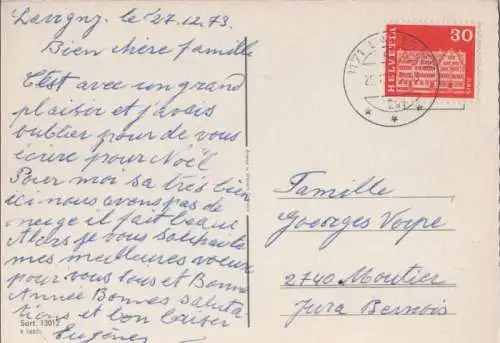 Lavigny le 27.12.73.
Bien chère famille
C'est avec un grand
plaisir et j'avais
oublier pour de vous
écrire pour Noël
Pour moi sa très bien
ici nous avons pas de
neige il fait beau
Alors je vous souhaite
mes meilleures voeux
pour vous tous et Bonne
Année Bonnes saluta
tions et bon baiser
Eugène
Sort. 13012
HELVETIA
30
Famille
Georges Voirpe
2740 Moutier
Jura Bernois